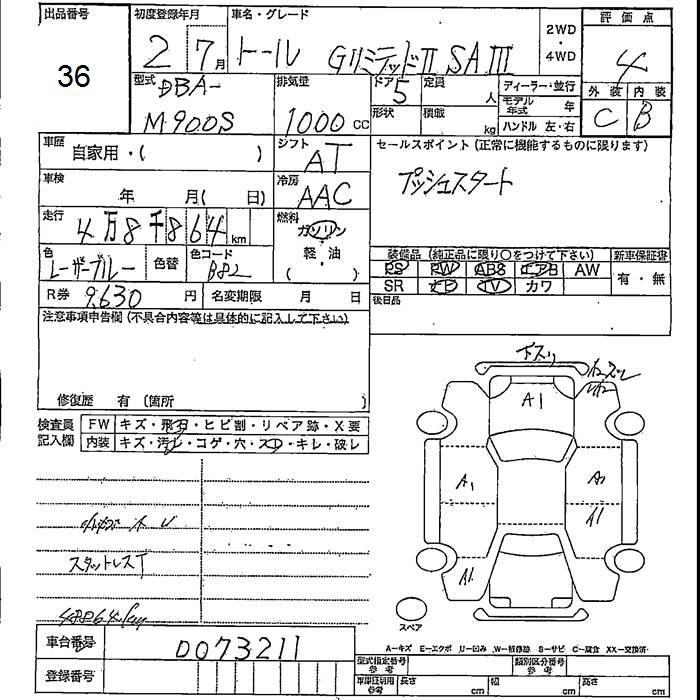 出品番号 初度登録年月 車名・グレード 2WD・4WD 評価点
36 2 7月 トール GリミテッドⅡ SAⅢ 4
型式 DBA- 排気量 ドア 5 定員 人 ディーラー・並行 外装 内装
M900S 1000 cc 形状 積載 kg モデル年式 年 C B
ハンドル 左・右
車歴 自家用・( ) シフト AT セールスポイント (正常に機能するものに限ります)
車検 年 月( 日) 冷房 AAC プッシュスタート
走行 4万8千864km 燃料 ガソリン
軽・油
( )
色 レーザーブルー 色替 色コード B82 装備品 (純正品に限り○をつけて下さい) 新車保証書
PS PW ABS エアB AW 有・無
R券 9630 円 名変期限 月 日 SR ナビ TV カワ
後日品
注意事項申告欄 (不具合内容等は具体的に記入して下さい)
修復歴 有 (箇所 )
検査員記入欄 FW キズ・飛石・ヒビ割・リペア跡・X要
内装 キズ・汚れ・コゲ・穴・スレ・キレ・破レ
下スリ
A1
A1
A2
A1
A1
スタットレスT
スペア
A-キズ E-エクボ U-凹み W-補修跡 S-サビ C-腐食 XX-交換済
車台番号 0073211
型式指定番号 参考 類別区分番号 参考
登録番号
車庫証明用 参考 長さ cm 幅 cm 高さ cm